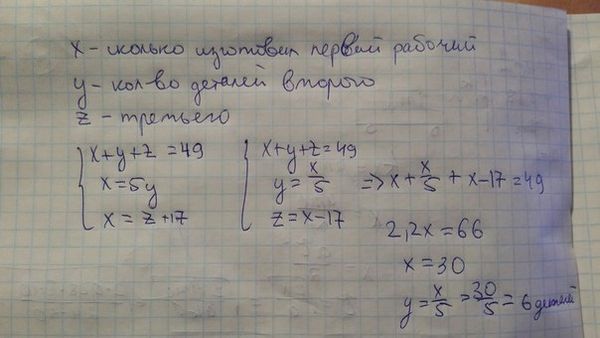 x - сколько изготовил первый рабочий
y - кол-во деталей второго
z - третьего
{ x+y+z=49
x=5y
x=z+17
{ x+y+z=49
y=x/5
z=x-17
=> x+x/5+x-17=49
2,2x=66
x=30
y=x/5=30/5=6 деталей